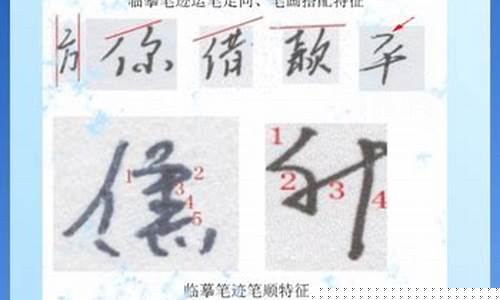 临摹笔迹运笔走向、笔画搭配特征
你 借 款 平
1 2 3 4 5 升 1 2 3 4
临摹笔迹笔顺特征